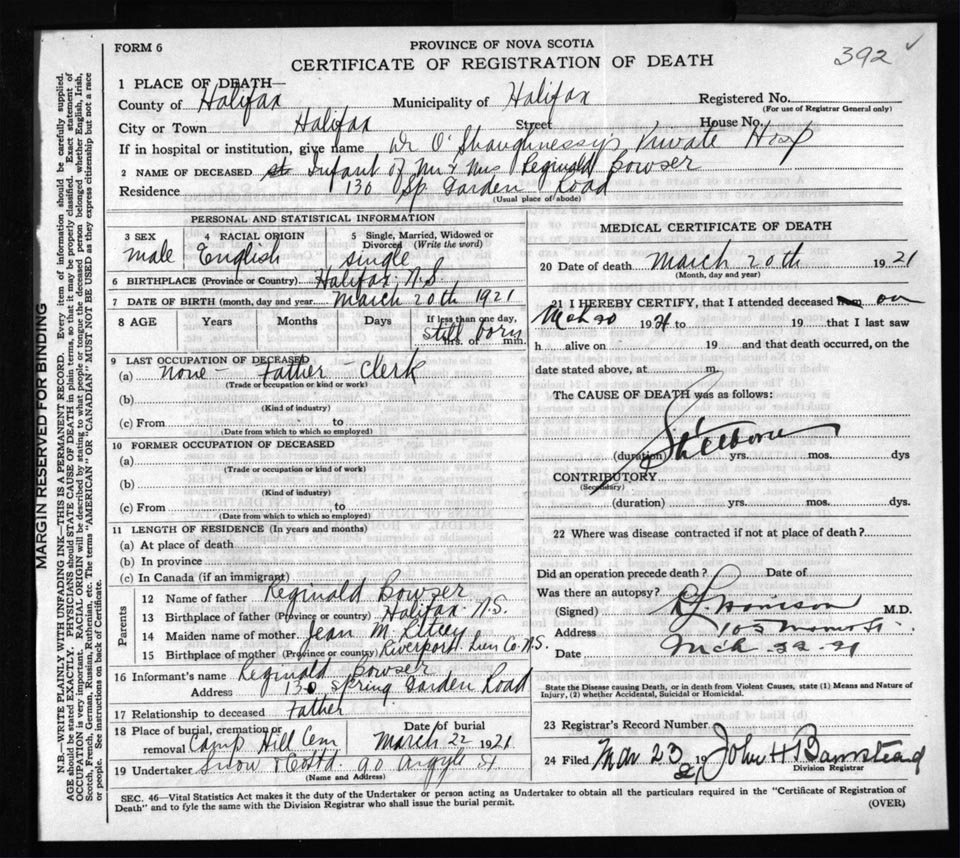 FORM 6
PROVINCE OF NOVA SCOTIA
392 ✓
CERTIFICATE OF REGISTRATION OF DEATH
MARGIN RESERVED FOR BINDING
N.B.—WRITE PLAINLY WITH UNFADING INK—THIS IS A PERMANENT RECORD. Every item of information should be carefully supplied.
AGE should be stated EXACTLY. PHYSICIANS should STATE CAUSE OF DEATH in plain terms, so that it may be properly classified. Exact statement of
OCCUPATION is very important. RACIAL ORIGIN will be described by stating to what people or tongue the deceased person belonged whether English, Irish,
Scotch, French, German, Russian, Ruthenian, etc. The terms "AMERICAN" OR "CANADIAN" MUST NOT BE USED as they express citizenship but not a race
or people. See instructions on back of Certificate.
1 PLACE OF DEATH—
County of Halifax Municipality of Halifax Registered No.
(For use of Registrar General only)
City or Town Halifax Street House No.
If in hospital or institution, give name Dr O'Shaughnessy's Private Hosp
2 NAME OF DECEASED Infant of Mr & Mrs Reginald Bowser
Residence 130 Sp Garden Road
(Usual place of abode)
PERSONAL AND STATISTICAL INFORMATION
3 SEX 4 RACIAL ORIGIN 5 Single, Married, Widowed or
Divorced (Write the word)
male English single
6 BIRTHPLACE (Province or Country) Halifax N.S.
7 DATE OF BIRTH (month, day and year) March 20th 1921
8 AGE Years Months Days If less than one day,
still born
hrs. or min.
9 LAST OCCUPATION OF DECEASED
(a) None - Father - Clerk
(Trade or occupation or kind or work)
(b)
(Kind of industry)
(c) From to
(Date from which to which so employed)
10 FORMER OCCUPATION OF DECEASED
(a)
(Trade or occupation or kind of work)
(b)
(Kind of industry)
(c) From to
(Date from which to which so employed)
11 LENGTH OF RESIDENCE (In years and months)
(a) At place of death
(b) In province
(c) In Canada (if an immigrant)
Parents
12 Name of father Reginald Bowser
13 Birthplace of father (Province or country) Halifax N.S.
14 Maiden name of mother Jean M. Ritcey
15 Birthplace of mother (Province or country) Riverport Lun Co. N.S.
16 Informant's name Reginald Bowser
Address 130 Spring Garden Road
17 Relationship to deceased Father
18 Place of burial, cremation or Date of burial
removal Camp Hill Cem March 22 1921
19 Undertaker Snow & Co Ltd. 90 Argyle St
(Name and Address)
MEDICAL CERTIFICATE OF DEATH
20 Date of death March 20th 1921
(Month, day and year)
21 I HEREBY CERTIFY, that I attended deceased from on
Mch 20 1921 to 19 that I last saw
h alive on 19 and that death occurred, on the
date stated above, at m.
The CAUSE OF DEATH was as follows:
Stillborn
(duration) yrs. mos. dys
CONTRIBUTORY
(Secondary)
(duration) yrs. mos. dys.
22 Where was disease contracted if not at place of death?
Did an operation precede death? Date of
Was there an autopsy?
(Signed) M.D.
Address 103 St.
Date Mch 22 - 21
State the Disease causing Death, or in death from Violent Causes, state (1) Means and Nature of
Injury, (2) whether Accidental, Suicidal or Homicidal.
23 Registrar's Record Number
24 Filed Mar 23 1921 John H Barnstead
Division Registrar
SEC. 46—Vital Statistics Act makes it the duty of the Undertaker or person acting as Undertaker to obtain all the particulars required in the "Certificate of Registration of
Death" and to fyle the same with the Division Registrar who shall issue the burial permit.
(OVER)